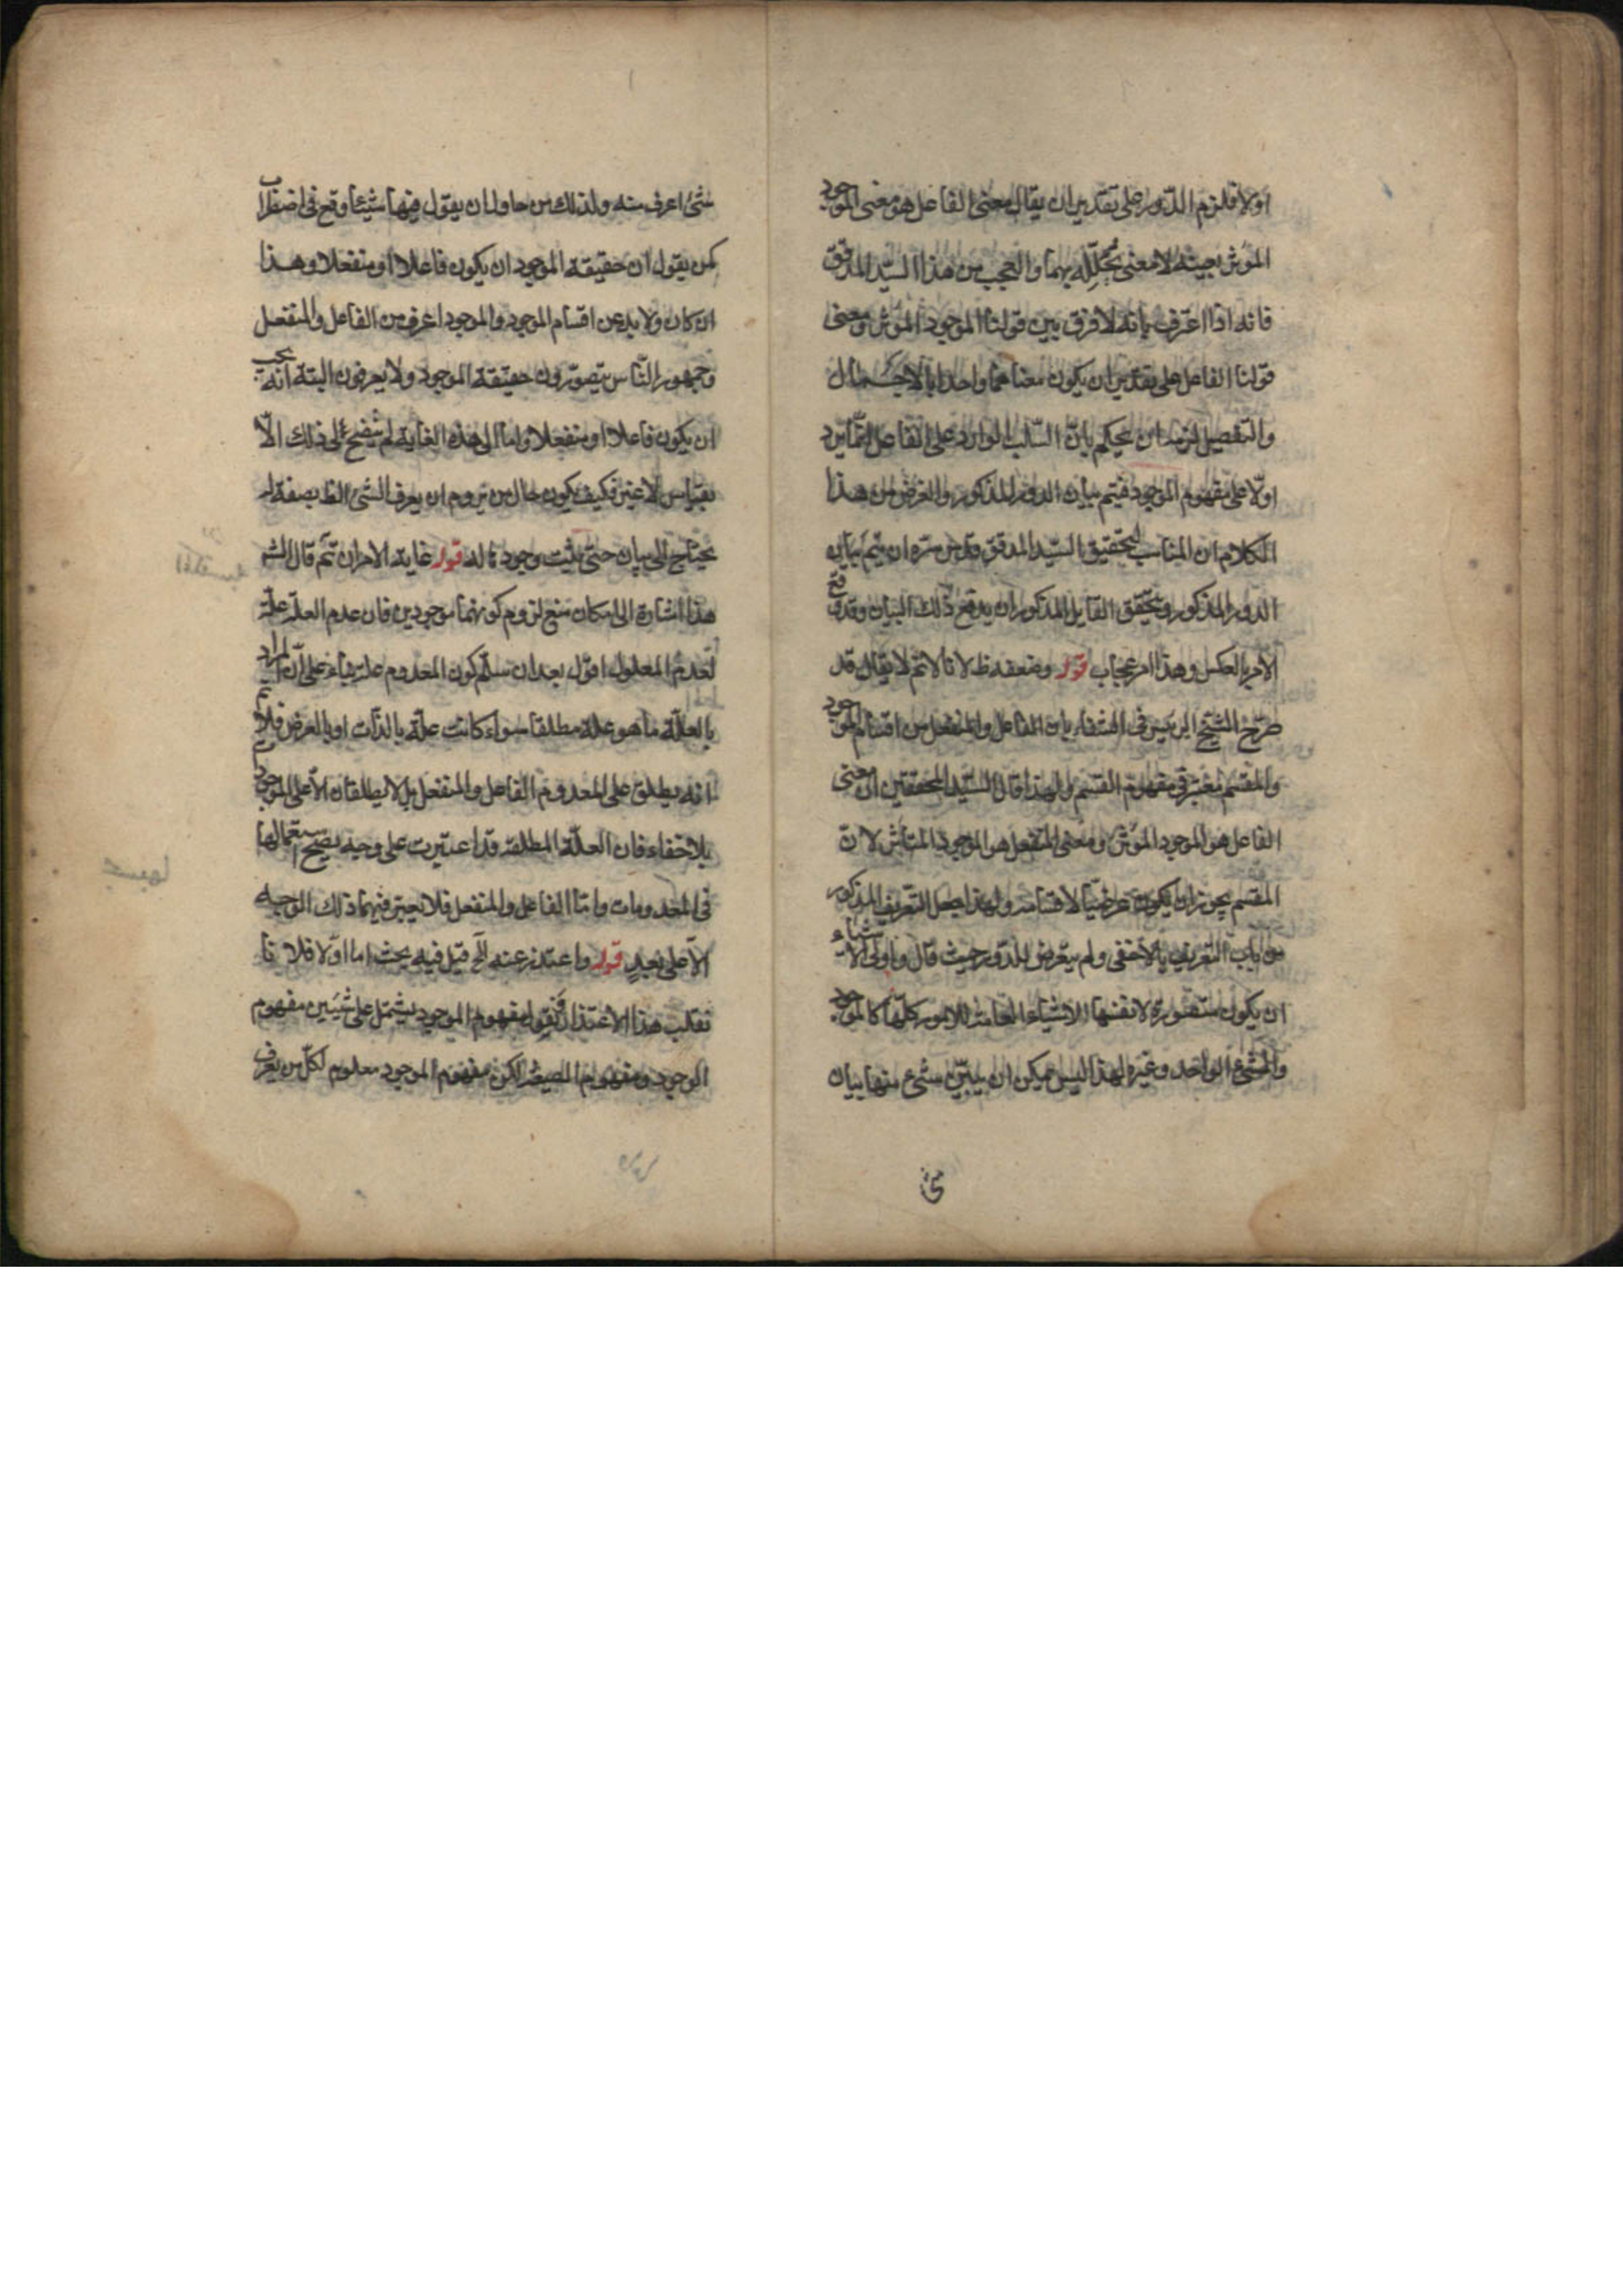 اولا فلزم الدور على تقدير ان يقال معنى الفاعل هو معنى الموجود
المؤثر بعينه لا معنى يحلله بهما والعجب من هذا السيد المدقق
فانه اذا اعترف بانه لا فرق بين قولنا الموجود المؤثر ومعنى
قولنا الفاعل على تقدير ان يكون معناهما واحدا بالاجمال
والتفصيل لزمه ان يحكم بان السلب الوارد على الفاعل انما يرد
اولا على مفهوم الموجود فيتم بيان الدور المذكور والغرض من هذا
الكلام ان المناسب لتحقيق السيد المدقق قدس سره ان يتم بيان
الدور المذكور وتحقق القايل المذكور ان يدفع ذلك البيان وقد وقع
الامر بالعكس وهذا امر عجاب قوله وضعفه ظ لانا لانم لا يقال قد
صرح الشيخ الرييس في الشفاء بان الفاعل والمنفعل من اقسام الموجود
والمقسم معتبر في مفهوم القسم ولهذا قال السيد المحققين ان معنى
الفاعل هو الموجود المؤثر ومعنى المنفعل هو الموجود المتاثر لان
المقسم يجوز ان يكون عرضيا لاقسامه ولهذا جعل التعريف المذكور
من باب التعريف بالاخفى ولم يتعرض للدور حيث قال واولى الاشياء
ان يكون متصورة لانفسها الاشياء العامة للامور كلها كالموجود
والشيء الواحد وغيره لهذا ليس يمكن ان يبين شيء منها ببيان
شئ اعرف منه ولذلك من حاول ان يقول فيها شيئا وقع في اضطراب
كمن يقول ان حقيقة الموجود ان يكون فاعلا او منفعلا وهذا
ان كان ولا بد من اقسام الموجود والموجود اعرف من الفاعل والمنفعل
وجمهور الناس يتصورون حقيقة الموجود ولا يعرفون البتة انه يجب
ان يكون فاعلا او منفعلا واما الى هذه الغاية لم يتضح لي ذلك الا
بقياس لا غير فكيف يكون حال من يروم ان يعرف الشئ الظ بصفة له
يحتاج الى بيان حتى يثبت وجودها له قوله غاية الامر ان تم قال الشر
هذا اشارة الى امكان منع لزوم كونهما موجودين فان عدم العلة علة
لعدم المعلول اقول بعد ان سلم كون المعدوم علة بناء على ان المراد
بالعلة ما هو علة مطلقا سواء كانت علة بالذات او بالعرض فلانم
انه يطلق على المعدوم الفاعل والمنفعل بل لا يطلقان الا على الموجود
بلا خفاء فان العلة المطلقة قد اعتبرت على وجه يصح استعمالها
في المعدومات واما الفاعل والمنفعل فلا يعتبر فيهما ذلك الوجه
الا على بعد قوله واعتذر عنه الخ قيل فيه بحث اما اولا فلانا
نقلب هذا الاعتذار فنقول مفهوم الموجود يشتمل على شيئين مفهوم
الوجود ومفهوم الصيغة لكن مفهوم الموجود معلوم لكل من يعرف